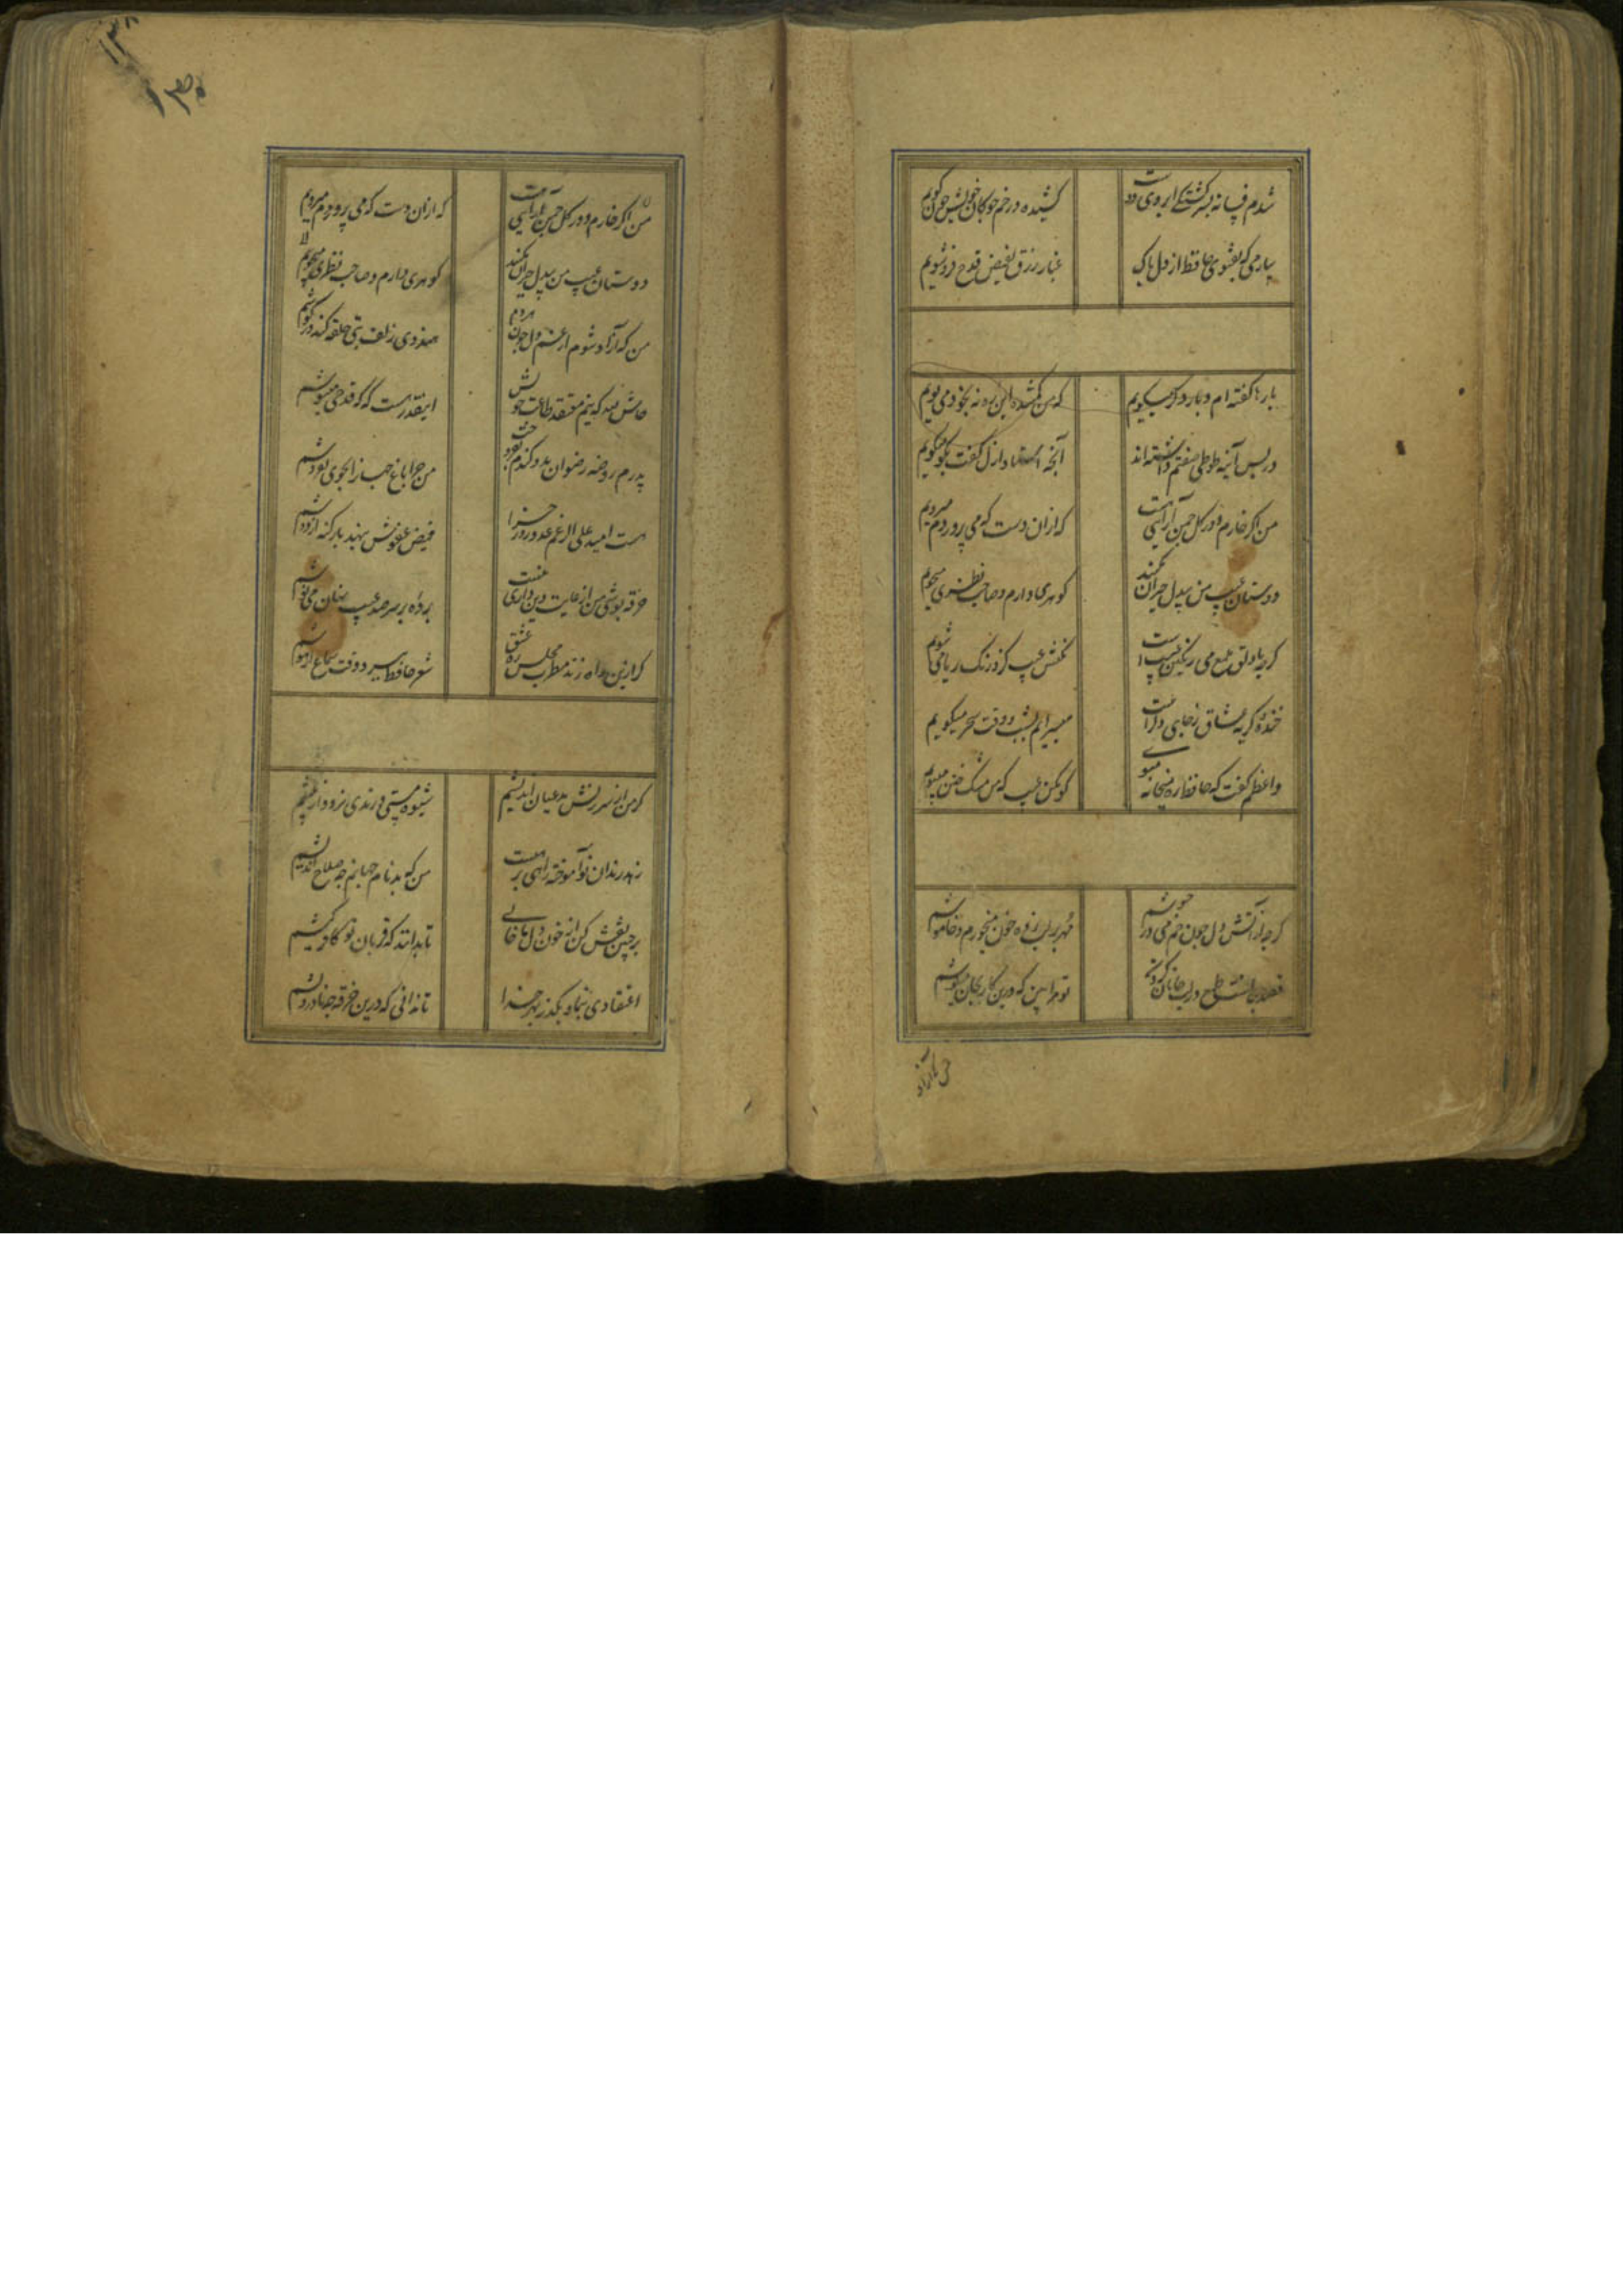 شدم فسانه بسرکشتکی ابروی دوست
کشیده در خم چوکان خویش چون کویم
بیار می که بفتوی حافظ از دل پاک
غبار زرق بفیض قدح فروشویم
بارها کفته ام و بار دکر میکویم
که من کمشده این ره نه بخود می پویم
در پس آینه طوطی صفتم داشته اند
آنچه استاد ازل کفت بکو میکویم
من اکر خارم و در کل چمن آرایی هست
که ازان دست که می پروردم میرویم
دوستان عیب من بیدل حیران نکنید
کوهری دارم و صاحب نظری میجویم
کرچه با دلق ملمع می رنکین عیب است
نکنش عیب کزو رنک ریا می شویم
خنده و کریه عشاق ز جایی دکر است
میسرایم بشب و وقت سحر میکویم
واعظم کفت که حافظ ره میخانه مپوی
کو مکن عیب که من مشک ختن میبویم
کرچه از آتش دل چون خم می در جوشم
مهر بر لب زده خون میخورم و خاموشم
قصد جانست طمع در لب جانان کردن
تو مرا بین که درین کار بجان میکوشم
من ازاد
۱۳۸
۱۳۵
من اکر خارم و در کل چمن آرایی هست
که ازان دست که می پروردم میرویم
دوستان عیب من بیدل حیران نکنید
کوهری دارم و صاحب نظری میجویم
من که آزاد شوم از غم دل چون هردم
هندوی زلف بتی حلقه کند در کوشم
حاش لله که نیم معتقد طاعت خویش
اینقدر هست که که که قدحی مینوشم
پدرم روضه رضوان بدو کندم بفروخت
من چرا باغ جهان را بجوی نفروشم
هست امید علی الرغم عدو روز جزا
فیض عفوش ننهد بار کنه بر دوشم
خرقه پوشی من از غایت دین داری نیست
پرده بر سر صد عیب نهان می پوشم
کر ازین راه زند مطرب مجلس ره عشق
شعر حافظ ببرد وقت سماع از هوشم
کر من از سرزنش مدعیان اندیشم
شیوه مستی و رندی نرود از پیشم
زهد رندان نوآموخته راهی بدهیست
من که بدنام جهانم چه صلاح اندیشم
بر جبین نقش کن از خون دل ما خالی
تا بدانند که قربان تو کافر کیشم
اعتقادی بنما و بکذر بهر خدا
تا ندانی که درین خرقه چه نادرویشم